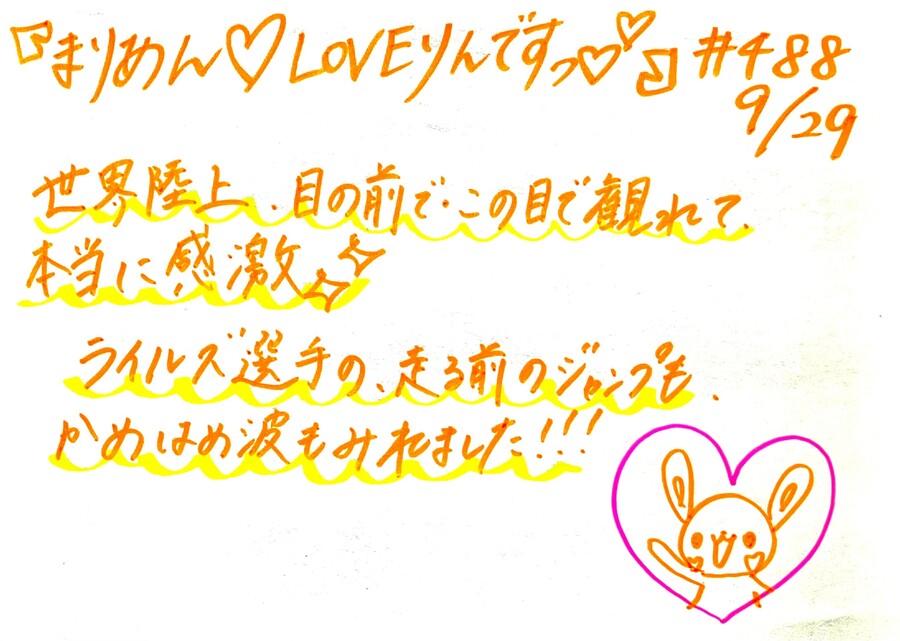 『まりめん♡LOVEりんですっ♡♡』#488
9/29
世界陸上、目の前で、この目で観れて、
本当に感激✨
ライルズ選手の、走る前のジャンプも、
かめはめ波もみれました!!!